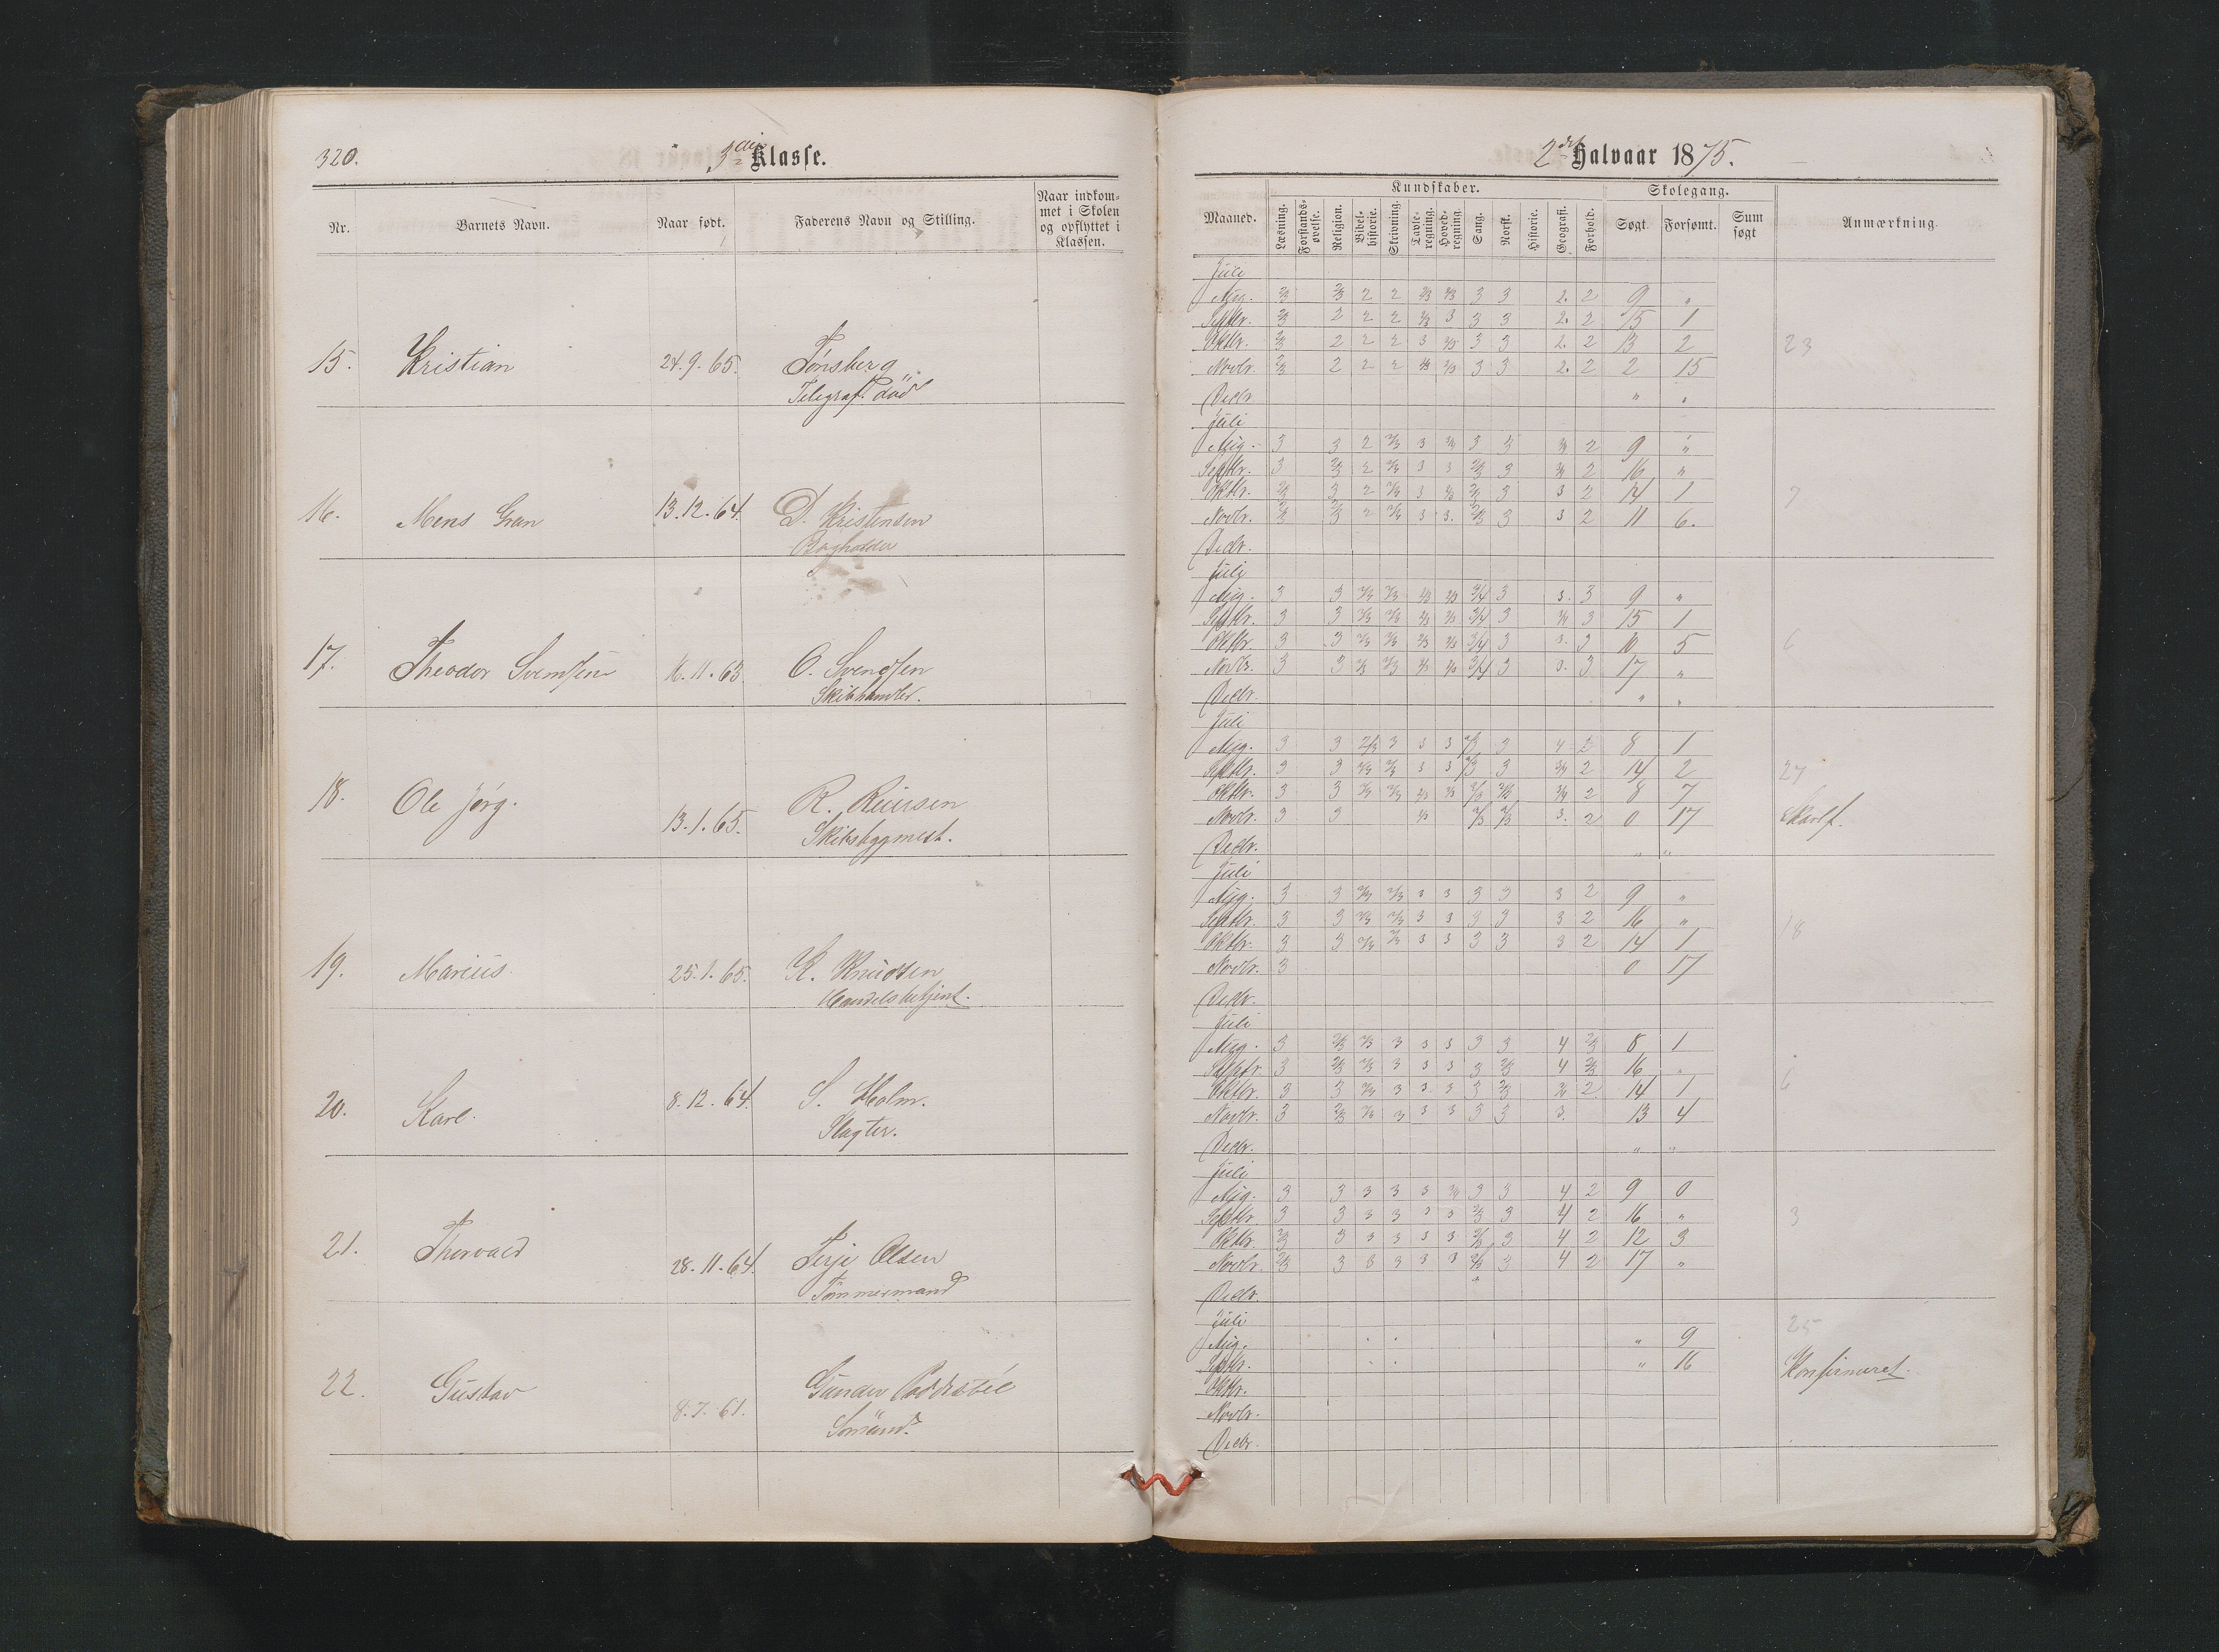 320.
3die Klasse.
Nr.
Barnets Navn.
Naar født.
Faderens Navn og Stilling.
Naar indkom-
met i Skolen
og opflyttet i
Klassen.
15. Kristian 24.9.65. Tønsberg
Telegraf. död
16. Mens Gran 13.12.64. D. Kristensen
Bogholder
17. Theodor Svendsen 16.11.65 O. Svendsen
Skibshandler.
18. Ole Jørg. 13.1.65. R. Reiersen
Skibsbygmest.
19. Marius 25.1.65. K. Knudsen
Handelsbetjent.
20. Karl 8.12.64. S. Holm.
Slagter.
21. Thorvald 28.11.64. Terje Olsen
Tømmermand
22. Gustav 8.7.61. Gunder
Sömand.
2det Halvaar 1875.
Maaned.
Kundskaber.
Læsning.
Forstands-
øvelse.
Religion.
Bibel-
historie.
Skrivning.
Tavle-
regning.
Hoved-
regning.
Sang.
Norsk.
Historie.
Geografi.
Forhold.
Skolegang.
Søgt
Forsømt.
Sum
søgt
Anmærkning.
Juli
Aug. 2/3 2/3 2 2 2/3 2/3 3 3 2. 2 9 "
Septbr. 2/3 2 2 2 2/3 3 3 3 2. 2 15 1
Oktbr. 2/3 2 2 2 3 2/3 3 3 2. 2 13 2 23
Novbr. 2/3 2 2 2 2/3 2/3 3 3 2. 2 2 15
Decbr. " "
Juli
Aug. 3 3 2 2/3 3 3/4 3 3 3/4 2 9 "
Septbr. 3 2/3 2 2/3 3 3 2/3 3 3/4 2 16 "
Oktbr. 2/3 3 2 2/3 3 2/3 2/3 3 3 2 14 1 7
Novbr. 2/3 2/3 2 2/3 3 3. 2/3 3 3 2 11 6.
Decbr.
Juli
Aug. 3 3 2/3 2/3 2/3 2/3 3/4 3 3. 3 9 "
Septbr. 3 3 2/3 2/3 2/3 2/3 3/4 3 3/4 3 15 1
Oktbr. 3 3 2/3 2/3 2/3 2/3 3/4 3 3. 3 10 5 6
Novbr. 3 3 2/3 2/3 2/3 2/3 3/4 3 3. 3 17 "
Decbr. " "
Juli
Aug. 3 3 2/3 3 3 3 2/3 3 4 2 8 1
Septbr. 3 3 2/3 2/3 3 3 2/3 3 3/4 2 14 2 27
Oktbr. 3 3 2/3 2/3 2/3 2/3 2/3 2/3 3/4 2 8 7
Novbr. 3 3 2/3 2/3 2/3 3. 2 0 17 Skarlf.
Decbr. " "
Juli
Aug. 3 3 2/3 2/3 3 3 3 3 3 2 9 "
Septbr. 3 3 2/3 2/3 3 3 3 3 3 2 16 " 18
Oktbr. 3 3 2/3 2/3 3 3 3 3 3 2 14 1
Novbr. 3 0 17
Decbr.
Juli
Aug. 3 2/3 2/3 3 3 3 3 3 4 2/3 8 1
Septbr. 3 2/3 2/3 3 3 3 3 2/3 4 2/3 16 "
Oktbr. 3 3 2/3 3 3 3 3 2/3 3/4 2 14 1 6
Novbr. 3 2/3 2/3 3 3 3 3 3 3. 13 4
Decbr. " "
Juli
Aug. 3 3 3 3 3 3/4 3 3 4 2 9 0
Septbr. 3 3 3 3 3 3 2/3 3 4 2 16 " 3
Oktbr. 2/3 3 3 3 3 3 2/3 3 4 2 12 3
Novbr. 2/3 3 3 3 3 3 2/3 3 4 2 17 "
Decbr.
Juli 25
Aug. " 9
Septbr. " 16 Konfirmeret.
Oktbr.
Novbr.
Decbr.